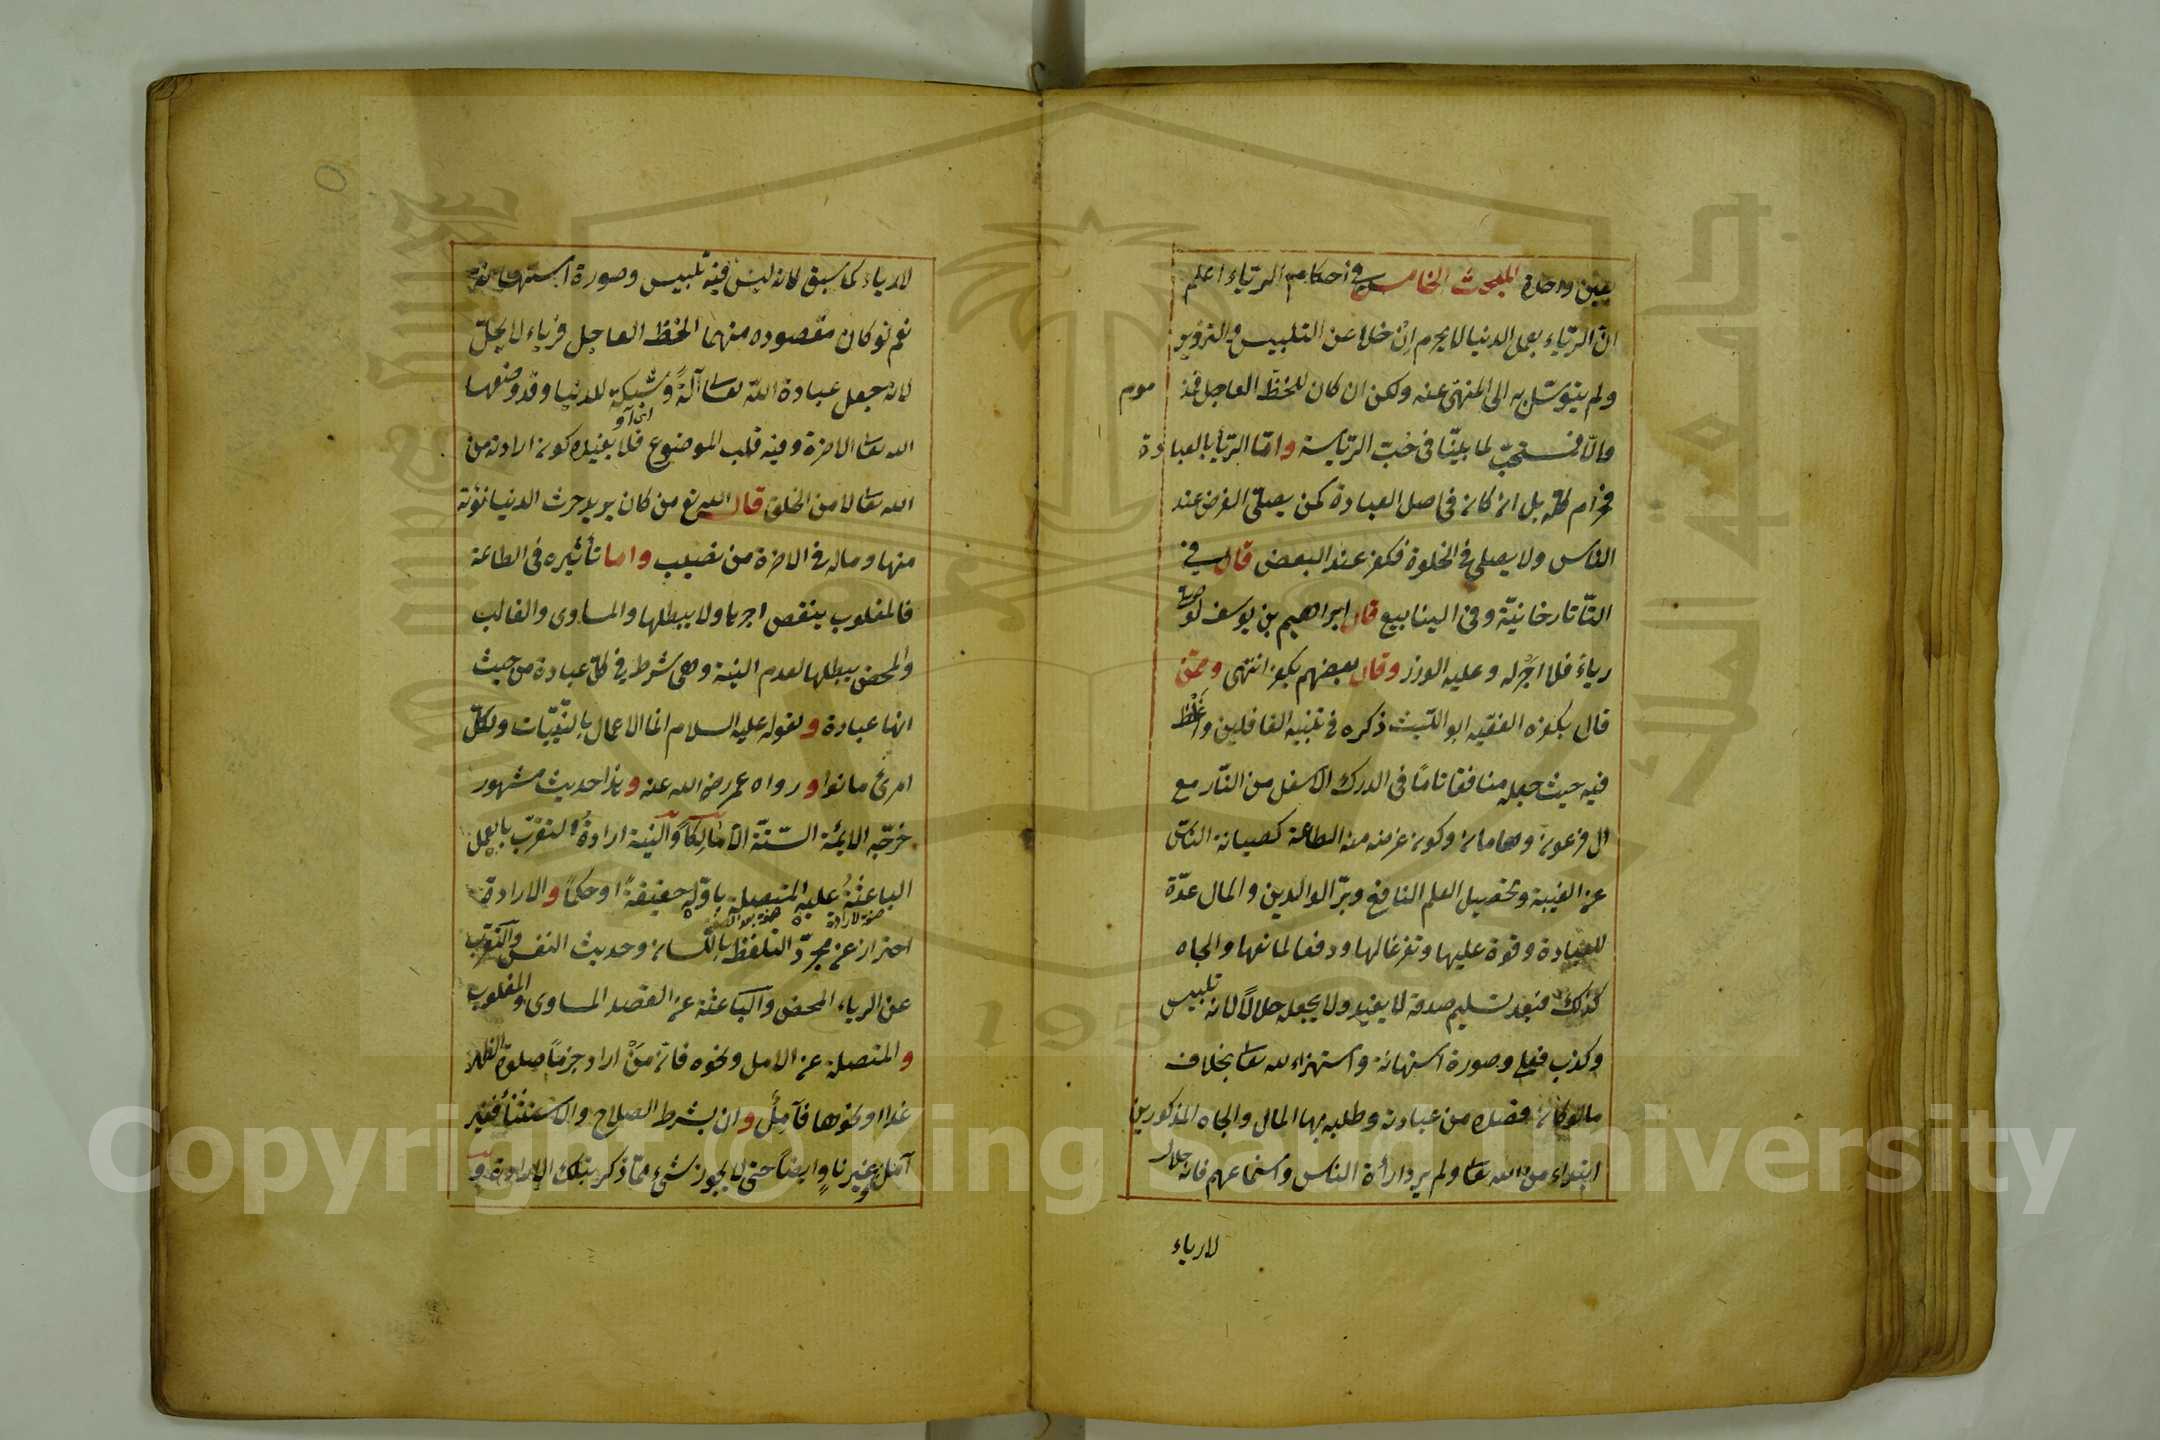 يقين واحارة المبحث الخامس في احكام الرياء اعلم
ان الرياء بعمل الدنيا لا يحرم اِنْ خلا عن التلبيس والتزوير
ولم يتوسّل به الى المنهىّ عنه ولكن ان كان للحظّ العاجل فمذ موم
والّا فمستحبّ لما بيّنّا فى حبّ الرياسة وامّا الريا بالعبادة
فحرام كلّه بل ان كان فى اصل العبادة كمن يصلّى الفرض عند
الناس ولا يصلى فى الخلوة فكفر عند البعض قال فى
التّاتارخانيّة وفى الينابيع قال ابراهيم بن يوسف لو صلّى
رياءً فلا اجرَ له وعليه الوزر وقال بعضهم يكفر انتهى وممّن
قال بكفره الفقيه ابو اللّيث ذكره فى تنبيه الغافلين واغلظ
فيه حيث جعله منافقا تامّا فى الدرك الاسفل من النّار مع
ال فرعون وهامان وكون غرضه منه الطاعة كصيانة الناس
عن الغيبة وتحصيل العلم النافع وبرّ الوالدين والمال عدّة
للعبادة وقوة عليها وتفرغا لها ودفعا لمانعها والجاه
كذلك فبعد تسليم صدقه لا يفيد ولا يجعله حلالًا لانه تلبيس
وكذب فعلى وصورة استهانة واستهزاء لله تعا بخلاف
ما لو كان قصده من عبادته وطلبه بها المال والجاه المذكورين
ابتداء من الله تعا ولم يرد ارأة الناس واسماعهم فانه حلال
لا رياء
لا رياء كما سبق لانه ليس فيه تلبيس وصورة استهانة
نعم لو كان مقصوده منهما الحظ العاجل فرياء لا يحلّ
لانه جعل عبادة الله تعا آلةً وشبكة للدنيا وقد وضعها
الله تعا للاخرة وفيه قلب الموضوع فلا يفيده كون ارادته من
الله تعا لا من الخلق قال الله تع من كان يريد حرث الدنيا نؤته
منها وماله فى الاخرة من نصيب واما تأثيره فى الطاعة
فالمغلوب ينقص اجرها ولا يبطلها والمساوى والغالب
والمحض يبطلها لعدم النية وهى شرط فى كلّ عبادة من حيث
انها عبادة ولقوله عليه السلام انما الاعمال بالنّيّات ولكلّ
امرئٍ ما نوا ورواه عمر رضى الله عنه وهذا حديث مشهور
خرّجه الايمّة الستّة الّا مالكًا والنية ارادةُ التقرّب بالعمل
الباعثةُ عليه المتصلة باوّله حقيقةً او حكمًا والارادة
احتراز عن مجرّد التلفظ باللسان وحديث النفس والتقرّب
عن الرياء المحض والباعثة عن القصد المساوى والمغلوب
والمتصلة عن الامل ونحوه فان مَنْ اراد جزمًا صلوة الظهر
غدا او نحوها فآمِلٌ وان بشرط الصلاح والاستثناء فغير
آمل وغير ناوٍ ايضًا حتى لا يجوز شىء ممّا ذكر بتلك الارادة و